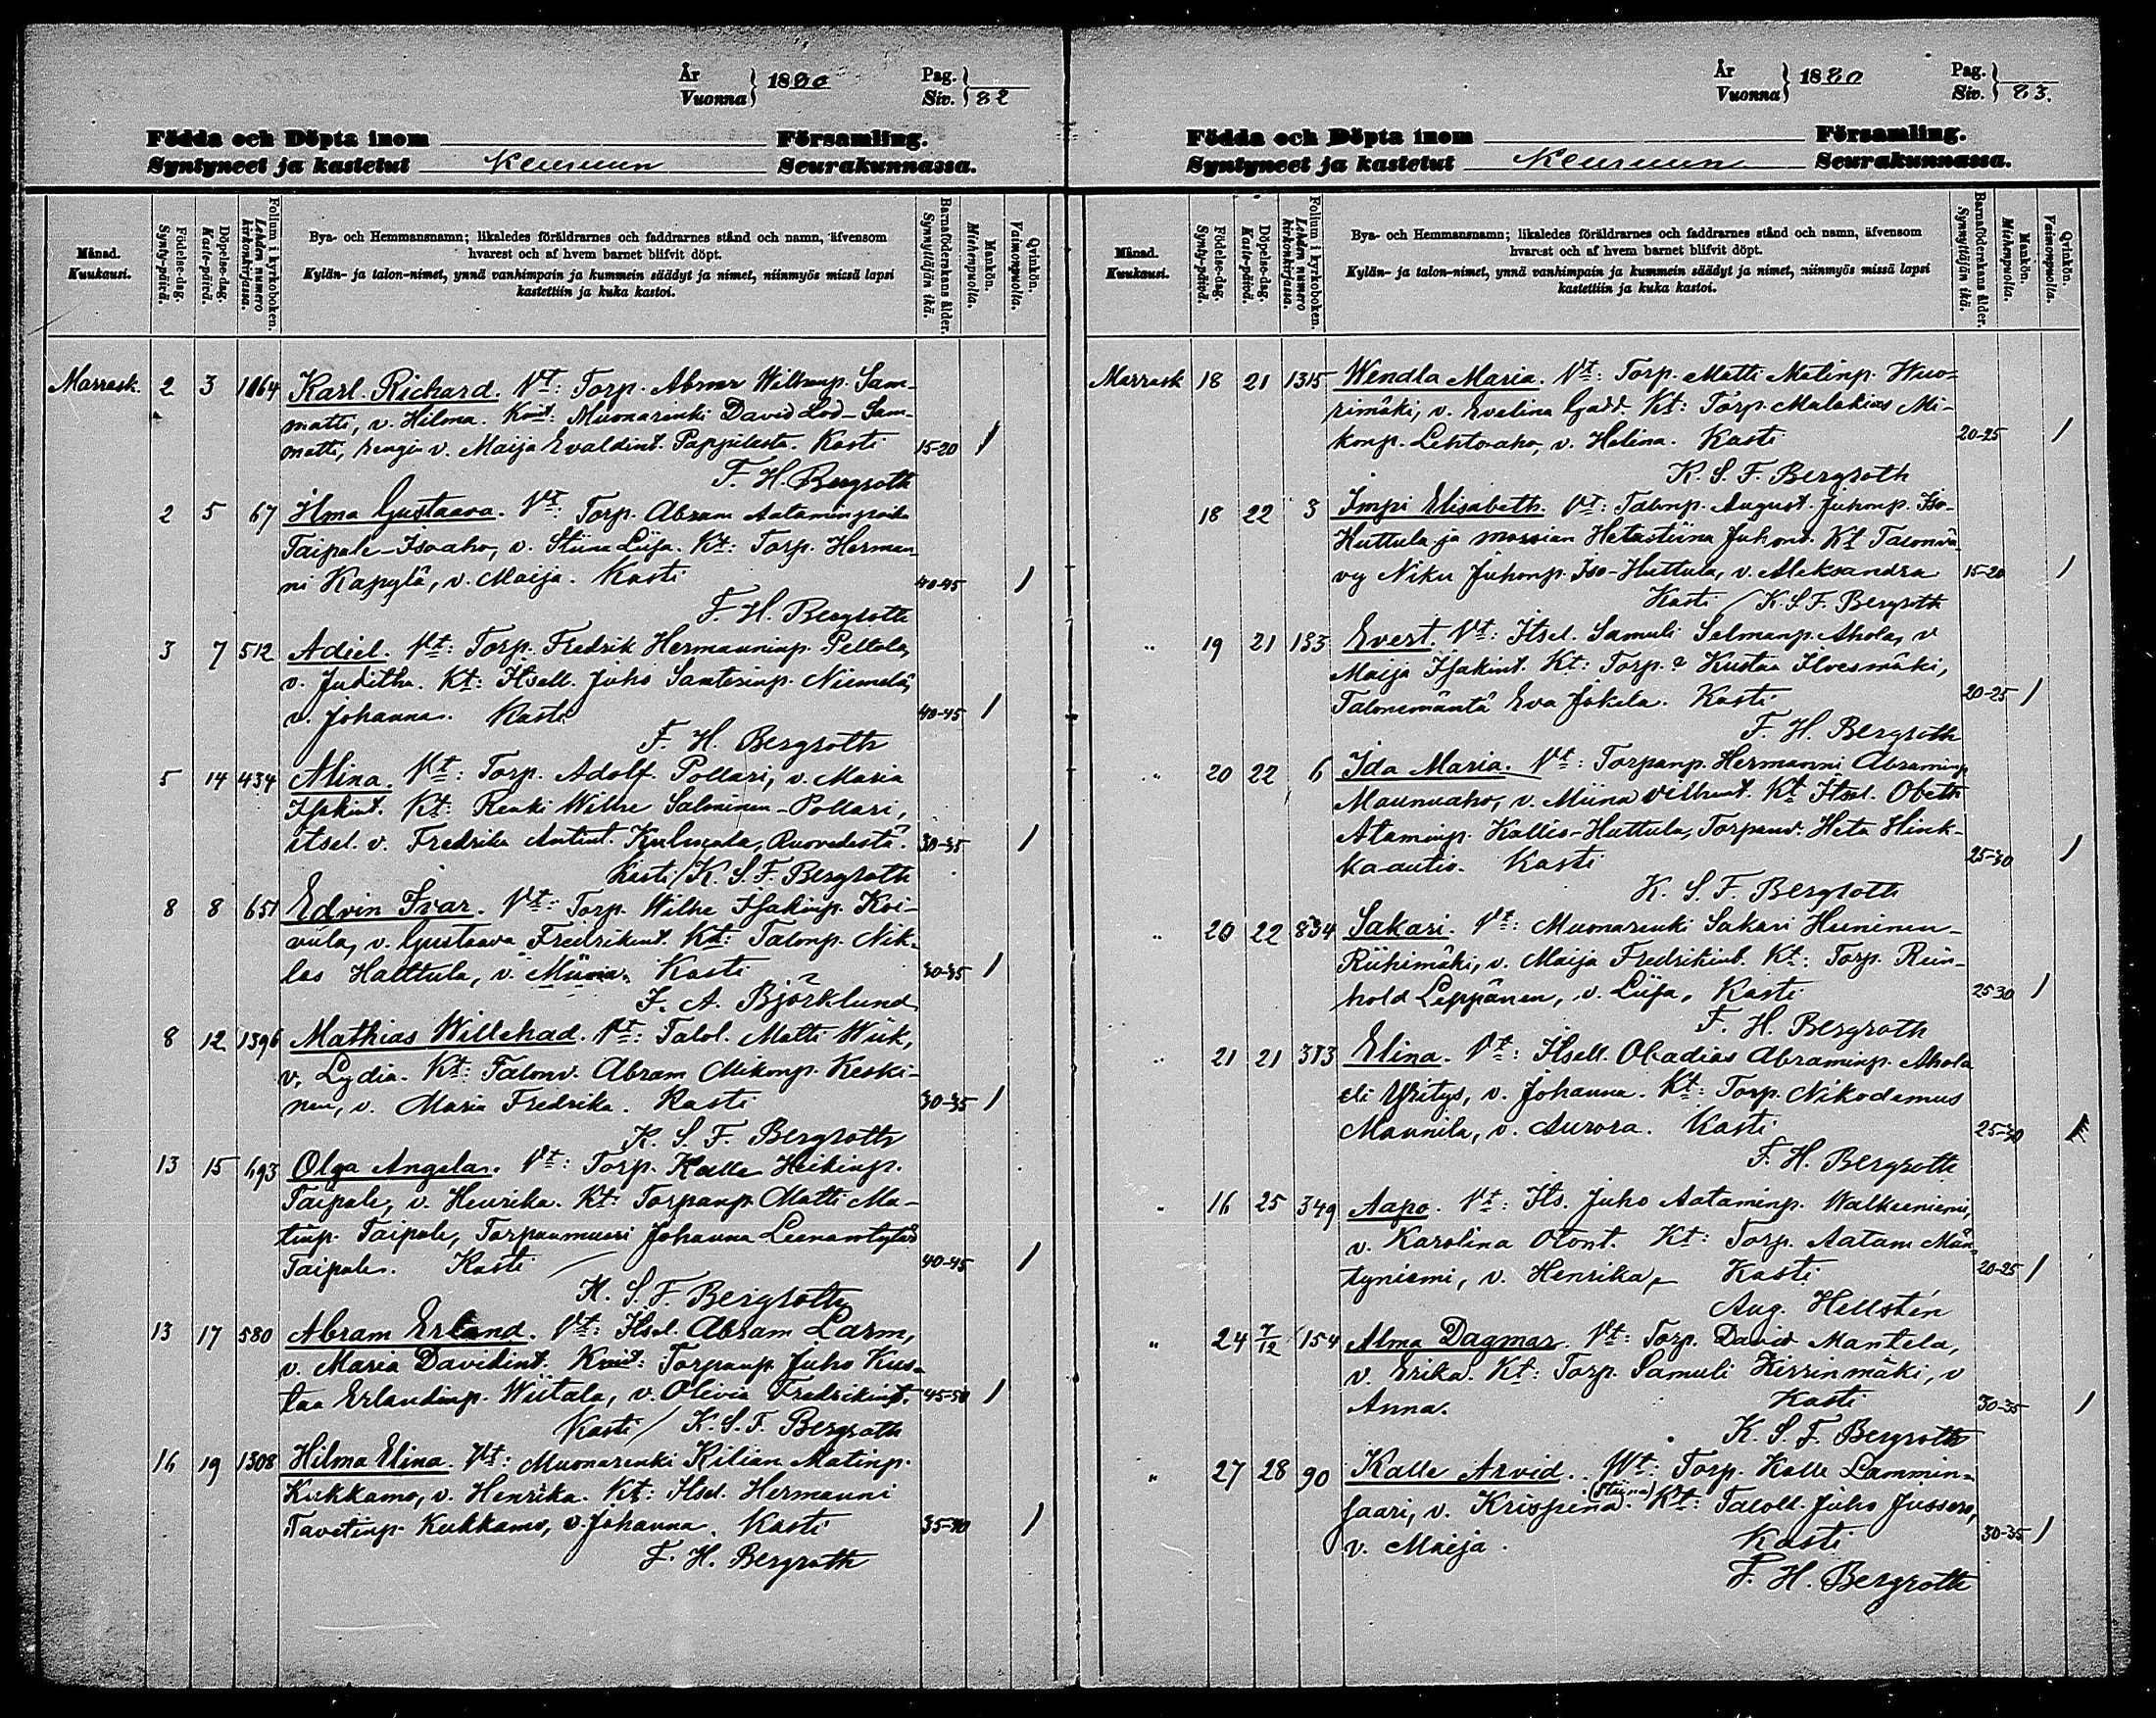 År Vuonna } 1880 Pag. Siv. } 82
Födda och Döpta inom Församling.
Syntyneet ja kastetut Keuruun Seurakunnassa.
Månad. Kuukausi.
Födelse-dag. Synty-päivä.
Döpelse-dag. Kaste-päivä.
Folium i kyrkoboken. Lehden numero kirkonkirjassa.
Bya- och Hemmansnamn; likaledes föräldrarnes och faddrarnes stånd och namn, äfvensom
hvarest och af hvem barnet blifvit döpt.
Kylän- ja talon-nimet, ynnä vanhimpain ja kummein säädyt ja nimet, niinmyös missä lapsi
kastettiin ja kuka kastoi.
Barnaföderskans ålder. Synnyttäjän ikä.
Mankön. Miehenpuolta.
Qvinkön. Vaimonpuolta.
Marrask. 2 3 1064 Karl Richard. Vt: Torp. Abmer Wilhmp. Sam-
matti, v. Hilma. Kmit: Muonarenki David Lod-Sam-
matti, rengin v. Maija Evaldint. Pappilasta. Kasti 15-20 1
F. H. Bergroth
2 5 67 Ilma Gustaava. Vt: Torp. Abram Aataminpoika
Taipale-Isoaho, v. Stiina Liisa. Kt: Torp. Herman-
ni Kapylä, v. Maija. Kasti 40-45 1
F. H. Bergroth
3 7 512 Adiel. Vt: Torp. Fredrik Hermanninp. Peltola,
v. Juditha. Kt: Itsell. Juho Santerinp. Niemelä,
v. Johanna. Kasti 40-45 1
F. H. Bergroth
5 14 434 Alina. Vt: Torp. Adolf Pollari, v. Maria
Isakint. Kt: Renki Wilhe Salminen-Pollari,
itsel. v. Fredrika Antint. Kulmala, Ruovedestä. 30-35 1
Kasti / K. S. F. Bergroth
8 8 651 Edvin Ivar. Vt: Torp. Wilhe Isakinp. Koi-
vula, v. Gustaava Fredrikint. Kt: Talonp. Nik-
las Halttula, v. Miina. Kasti 30-35 1
F. A. Björklund
8 12 1396 Mathias Willehad. Vt: Talol. Matti Wiik,
v. Lydia. Kt: Talonv. Abram Mikonp. Keski-
nen, v. Maria Fredrika. Kasti 30-35 1
K. S. F. Bergroth
13 15 693 Olga Angela. Vt: Torp. Kalle Heikinp.
Taipale, v. Henrika. Kt: Torpanp. Matti Ma-
tinp. Taipale, Torpanmuori Johanna Leenantytär
Taipale. Kasti 40-45 1
K. S. F. Bergroth
13 17 580 Abram Erland. Vt: Itsel. Abram Larm,
v. Maria Davidint. Kmit: Torpanp. Juho Kus-
taa Erlandinp. Wiitala, v. Olivia Fredrikint. 45-50 1
Kasti / K. S. F. Bergroth
16 19 1308 Hilma Elina. Vt: Muonarenki Kilian Matinp.
Kukkamo, v. Henrika. Kt: Itsel. Hermanni
Tavetinp. Kukkamo, v. Johanna. Kasti 35-40 1
F. H. Bergroth
År Vuonna } 1880 Pag. Siv. } 83.
Födda och Döpta inom Församling.
Syntyneet ja kastetut Keuruun Seurakunnassa.
Månad. Kuukausi.
Födelse-dag. Synty-päivä.
Döpelse-dag. Kaste-päivä.
Folium i kyrkoboken. Lehden numero kirkonkirjassa.
Bya- och Hemmansnamn; likaledes föräldrarnes och faddrarnes stånd och namn, äfvensom
hvarest och af hvem barnet blifvit döpt.
Kylän- ja talon-nimet, ynnä vanhimpain ja kummein säädyt ja nimet, niinmyös missä lapsi
kastettiin ja kuka kastoi.
Barnaföderskans ålder. Synnyttäjän ikä.
Mankön. Miehenpuolta.
Qvinkön. Vaimonpuolta.
Marrask 18 21 1315 Wendla Maria. Vt: Torp. Matti Matinp. Wuo-
rimäki, v. Evelina Gadd. Kt: Torp. Malakias Mi-
konp. Lehtoaho, v. Helina. Kasti 20-25 1
K. S. F. Bergroth
18 22 3 Impi Elisabeth. Vt: Talonp. August Juhonp. Iso-
Huttula ja morsian Hetastiina Juhont. Kt Talonvä-
vy Niku Juhonp. Iso-Huttula, v. Aleksandra 15-20 1
Kasti / K. S. F. Bergroth
" 19 21 133 Evert. Vt: Itsel. Samuli Selmanp. Ahola, v
Maija Isakint. Kt: Torp. Kustaa Ilvesmäki,
Talonemäntä Eva Jokela. Kasti 20-25 1
F. H. Bergroth
" 20 22 6 Ida Maria. Vt: Torpanp. Hermanni Abraminp
Maunuaho, v. Miina Vilhmt. Kt Itsel. Obeth
Ataminp. Kallio-Huttula, Torpanv. Heta Hink-
ka-autio. Kasti 25-30 1
K. S. F. Bergroth
" 20 22 834 Sakari. Vt: Muonarenki Sakari Heininen-
Riihimäki, v. Maija Fredrikint. Kt: Torp. Rein-
hold Leppänen, v. Liisa. Kasti 25-30 1
F. H. Bergroth
" 21 21 313 Elina. Vt: Itsell. Obadias Abraminp. Ahola
eli Yritys, v. Johanna. Kt: Torp. Nikodemus
Mannila, v. Aurora. Kasti 25-30 1
F. H. Bergroth
" 16 25 349 Aapo. Vt: Its. Juho Aataminp. Walkeeniemi,
v. Karolina Otont. Kt: Torp. Aatam Män-
tyniemi, v. Henrika. Kasti 20-25 1
Aug. Hellstén
" 24 7/12 154 Alma Dagmar. Vt: Torp. David Mantela,
v. Erika. Kt: Torp. Samuli Kirrinmäki, v
Anna. Kasti 30-35 1
K. S. F. Bergroth
" 27 28 90 Kalle Arvid. Wt: Torp. Kalle Lammin-
saari, v. Krispina (Stiina). Kt: Taloll. Juho Jussero,
v. Maija. Kasti 30-35 1
F. H. Bergroth